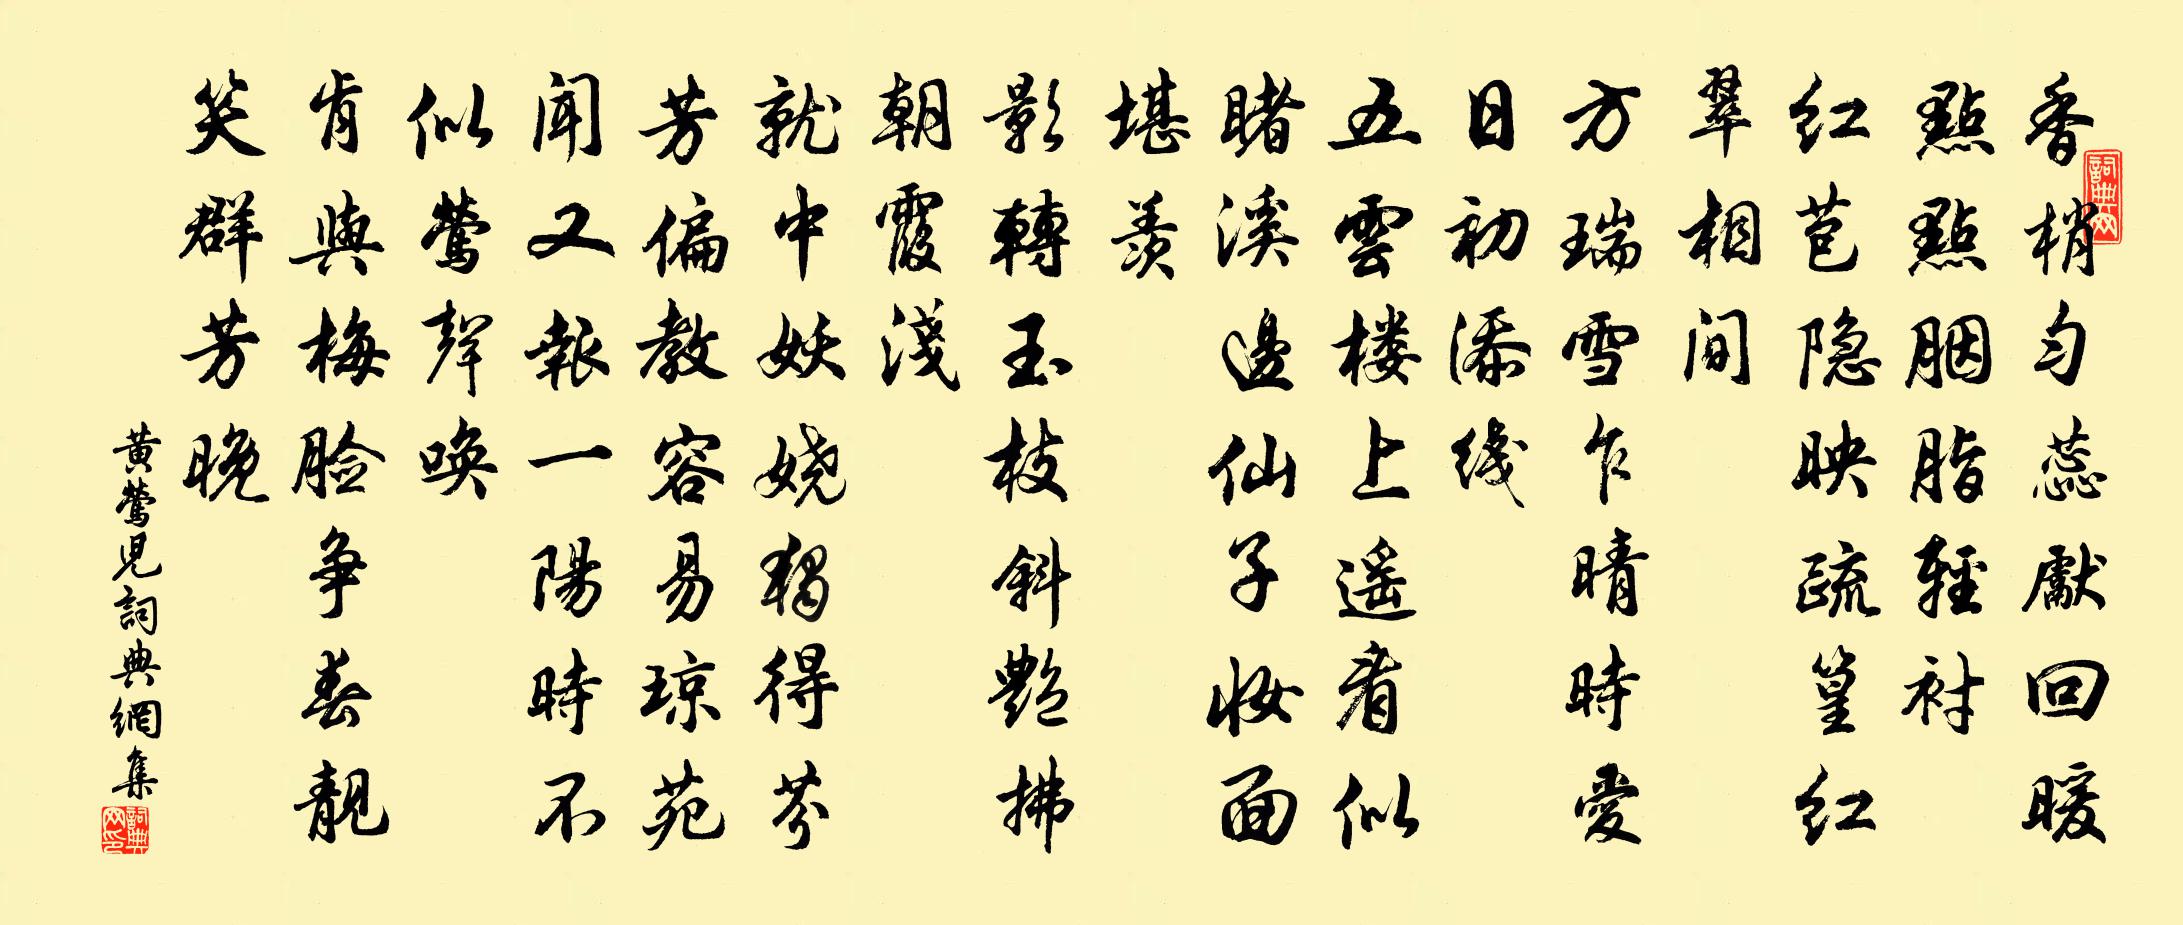 香梢勻蕊獻回暖
點點胭脂輕襯
红苞隐映疏篁红
翠相间
方瑞雪乍晴時愛
日初添线
五雲楼上遥看似
睹溪邊仙子妝面
堪羨
影轉玉枝斜艷拂
朝霞淺
就中妖娆獨得芬
芳偏教容易琼苑
闻又報一陽時不
似鶯聲唤
肯與梅脸争春靚
笑群芳晚
黄鶯兒詞典網集
詞典网
詞典网印